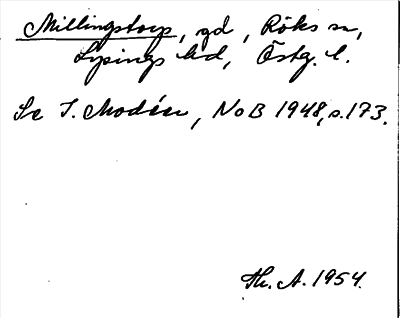 Millingstorp, gd, Röks sn,
Lysings hd, Östg. l.
Se I. Modéer, NoB 1948, s. 173.
Th. A. 1954.